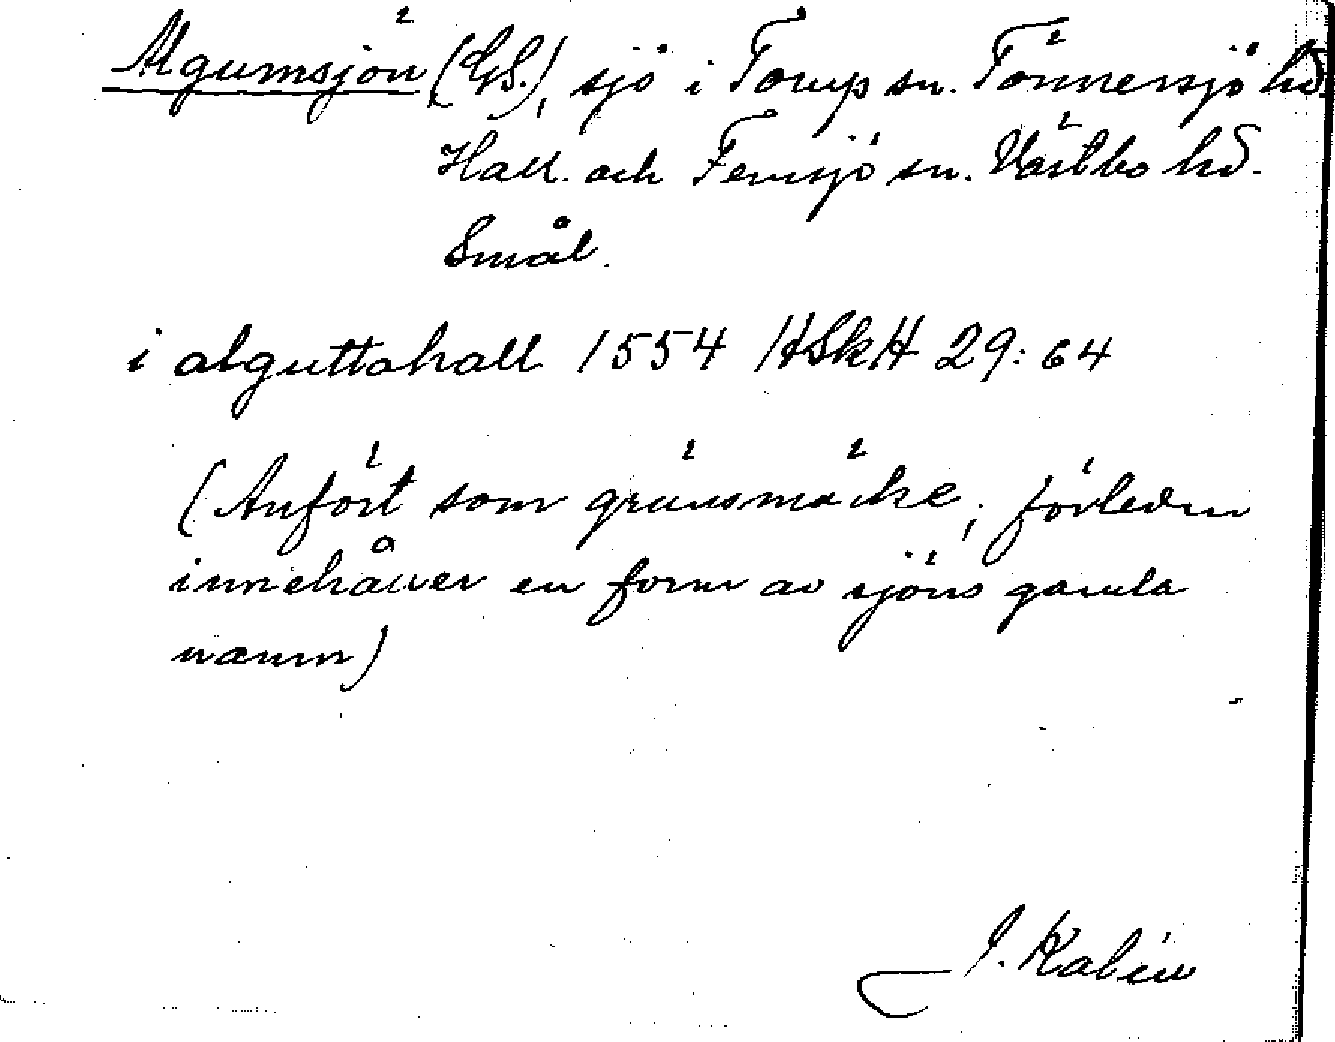 Algumsjön (GS.), sjö i Torup sn. Tönnersjö hd.
Hall. och Femsjö sn. Västbo hd.
Smål.
i alguttahall 1554 HSkH 29:64
(Anfört som gränsmärke; förleden
innehåller en form av sjöns gamla
namn)
J. Kalén